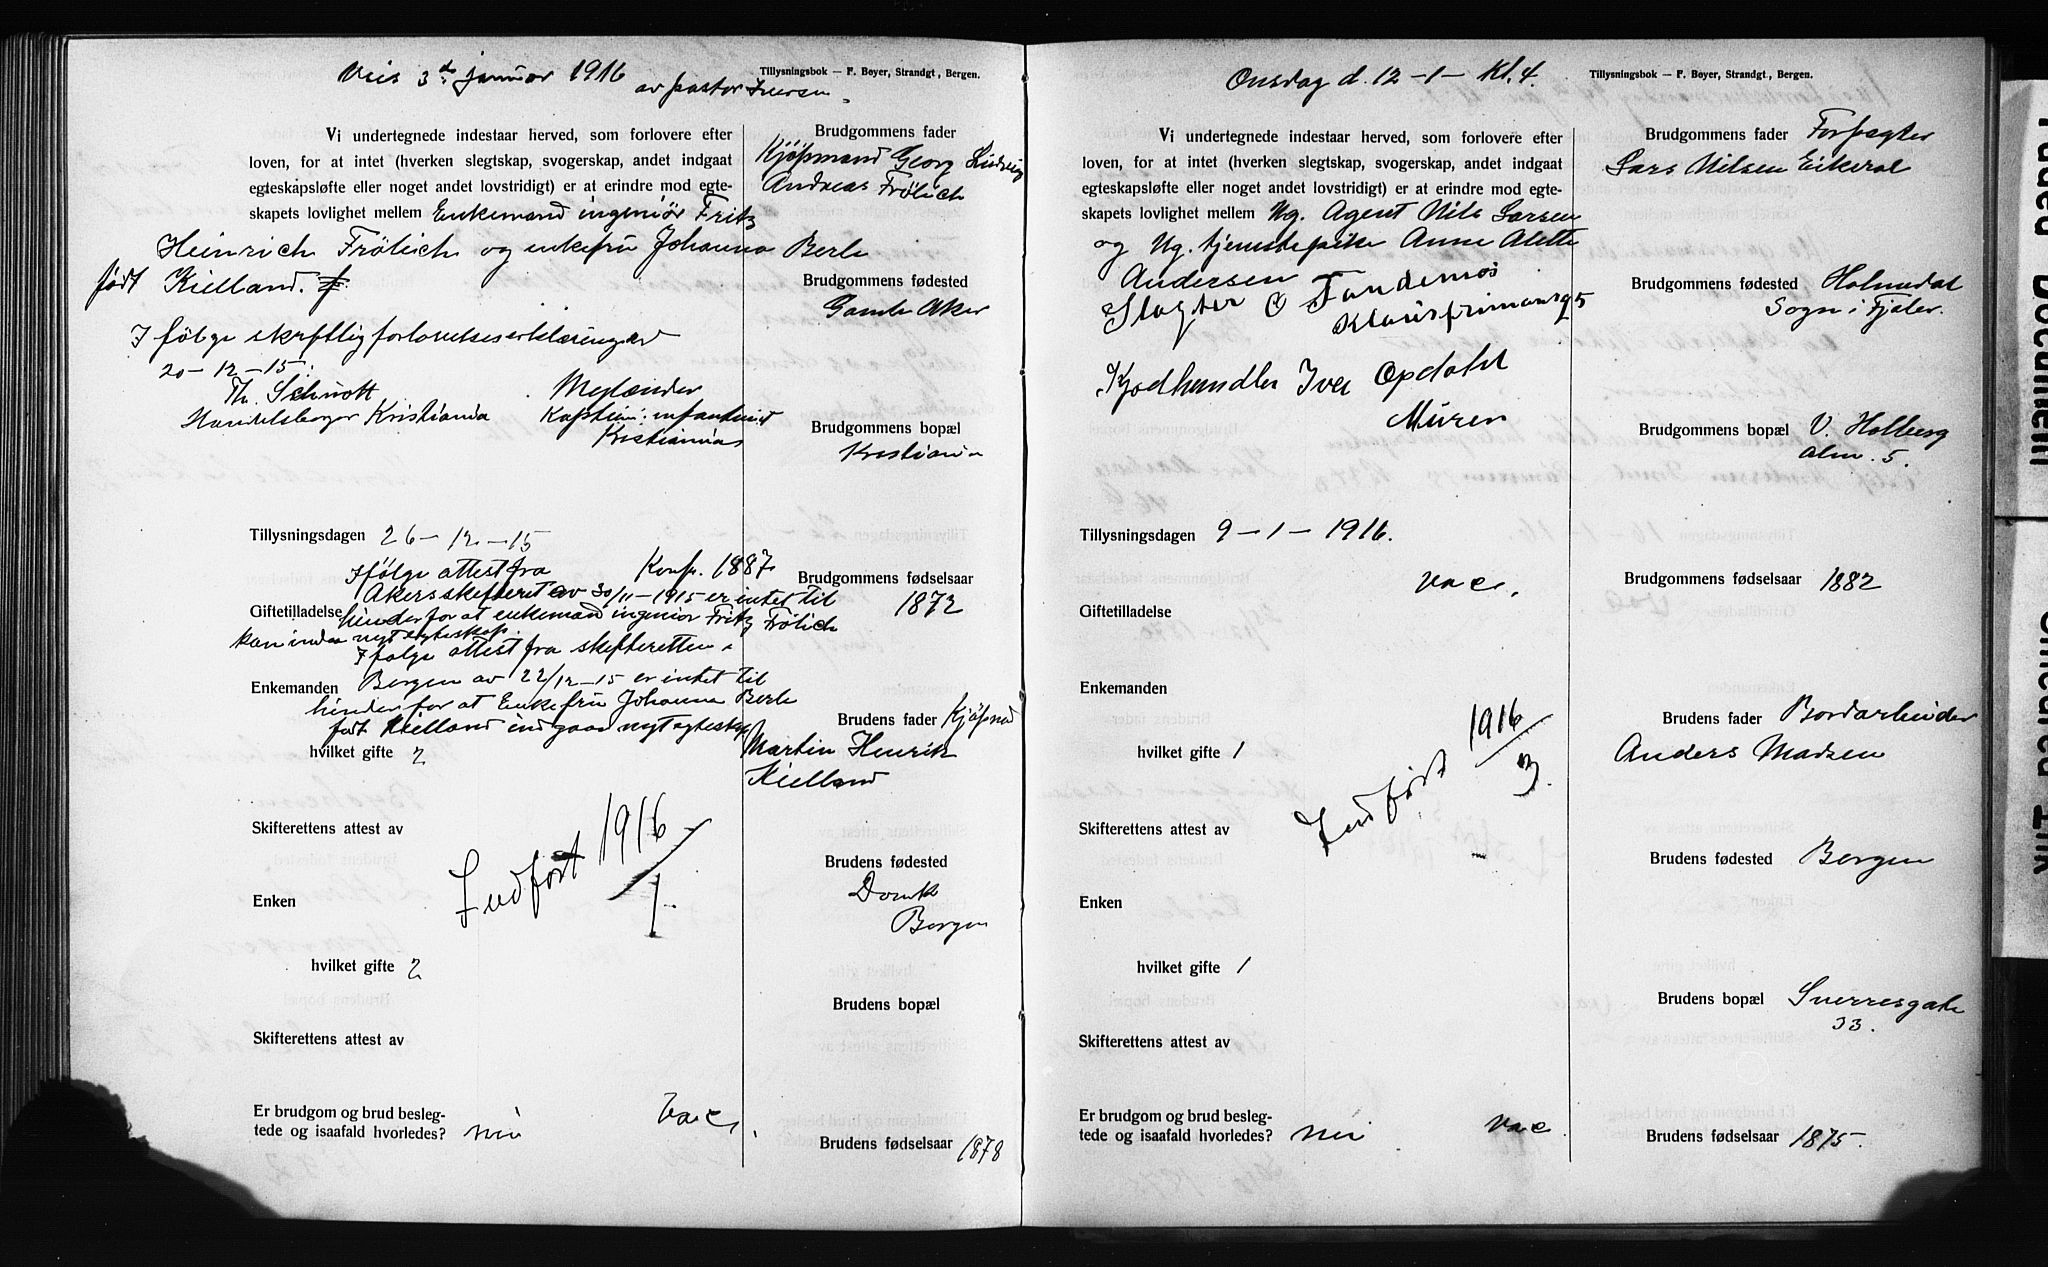 Viis 3d januar 1916
av pastor Iversen
Tillysningsbok — F. Beyer, Strandgt., Bergen.
Vi undertegnede indestaar herved, som forlovere efter
loven, for at intet (hverken slegtskap, svogerskap, andet indgaat
egteskapsløfte eller noget andet lovstridigt) er at erindre mod egte-
skapets lovlighet mellem Enkemand ingeniør Fritz
Heinrich Frölich og enkefru Johanna Berle
født Kielland.
I følge skriftlig forloverserklæring av
20-12-15:
Th. Schiøtt
Handelsborger Kristiania
Meglænder
Kaptein i infanteriet
Kristiania
Brudgommens fader
Kjøpmand Georg Ludvig
Andreas Frölich
Brudgommens fødested
Gamle Aker
Brudgommens bopæl
Kristiania
Tillysningsdagen 26-12-15
Ifølge attest fra Konf. 1887
Akersskifteret av 30/11-1915 er intet til
Giftetilladelse hinder for at enkemand ingeniør Fritz Frölich
kan indgaa nyt egteskap.
Ifølge attest fra skifteretten i
Enkemanden Bergen av 22/12-15 er intet til
hinder for at Enkefru Johanna Berle
født Kielland indgaar nyt egteskap
hvilket gifte 2
Brudgommens fødselsaar
1872
Brudens fader Kjøpmd
Martin Henrik
Kielland
Skifterettens attest av
Indført 1916/1
Brudens fødested
Domk
Bergen
Enken
hvilket gifte 2
Brudens bopæl
Skifterettens attest av
Er brudgom og brud besleg-
tede og isaafald hvorledes? nei
vac.
Brudens fødselsaar 1878
Onsdag d. 12-1- Kl. 4.
Tillysningsbok — F. Beyer, Strandgt., Bergen.
Vi undertegnede indestaar herved, som forlovere efter
loven, for at intet (hverken slegtskap, svogerskap, andet indgaat
egteskapsløfte eller noget andet lovstridigt) er at erindre mod egte-
skapets lovlighet mellem Ug. Agent Nils Larsen
og Ug. tjenestepike Anne Alette
Andersen
Slagter O Tandemos
Klausfrimansg 5
Kjødhandler Iver Opdahl
Muren
Brudgommens fader Forpagter
Lars Nilsen Eikerol
Brudgommens fødested Holmedal
Sogn i Fjaler.
Brudgommens bopæl V. Holberg
alm. 5.
Tillysningsdagen 9-1-1916.
vac.
Brudgommens fødselsaar 1882
Giftetilladelse
Enkemanden
hvilket gifte 1
Indført 1916/3
Brudens fader Bordarbeider
Anders Madsen
Skifterettens attest av
Brudens fødested Bergen
Enken
hvilket gifte 1
Brudens bopæl Sverresgate
33.
Skifterettens attest av
Er brudgom og brud besleg-
tede og isaafald hvorledes? nei
vac
Brudens fødselsaar 1875.